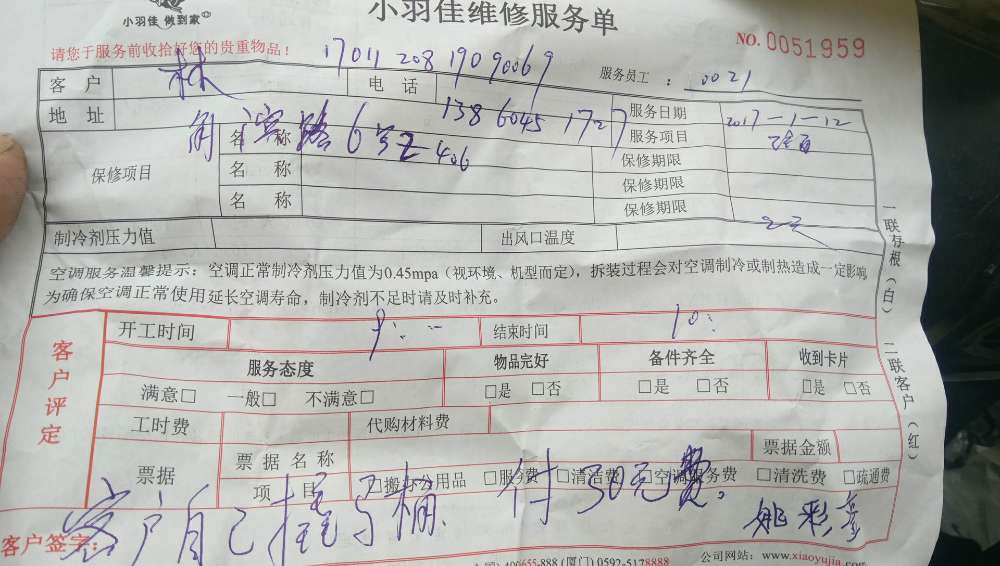 小羽佳 做到家
小羽佳维修服务单
请您于服务前收拾好您的贵重物品！
NO. 0051959
17011 208 1909 0069
服务员工：0021
客户 林 电话 138 6045 1727 服务日期 2017-1-12
地址 路6号 406 服务项目
保修项目 名称 保修期限
名称 保修期限
名称 保修期限
制冷剂压力值 出风口温度
空调服务温馨提示：空调正常制冷剂压力值为0.45mpa（视环境、机型而定），拆装过程会对空调制冷或制热造成一定影响
为确保空调正常使用延长空调寿命，制冷剂不足时请及时补充。
一联存根（白） 二联客户（红）
客户评定
开工时间 9： 结束时间 10：
服务态度 物品完好 备件齐全 收到卡片
满意□ 一般□ 不满意□ □是 □否 □是 □否 □是 □否
工时费 代购材料费
票据 票据名称 票据金额
项目 □搬办公用品 □服务费 □清洁费 □空调服务费 □清洗费 □疏通费
客户自己 付30元费。
姚彩
客户签字：
400655-888 (厦门) 0592-5178888 公司网站：www.xiaoyujia.com